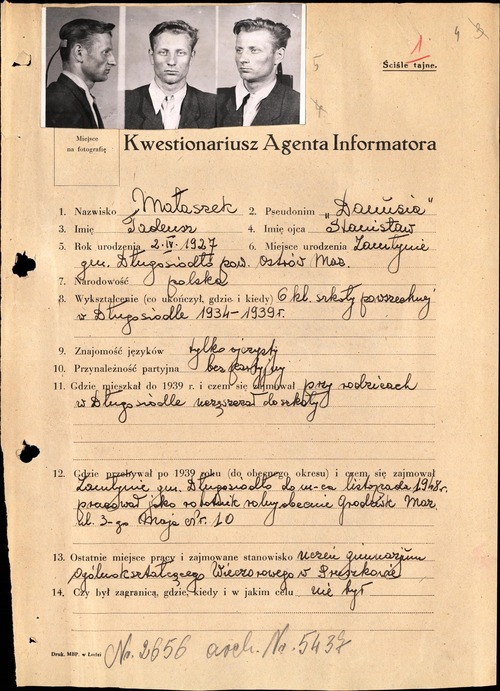 1
4
5
Ściśle tajne.
Miejsce
na fotografię
Kwestionariusz Agenta Informatora
1. Nazwisko Mataszek 2. Pseudonim „Danusia"
3. Imię Tadeusz 4. Imię ojca Stanisław
5. Rok urodzenia 2.IV.1927 6. Miejsce urodzenia Zamtynie
gm. Długosiodło pow. Ostrów Maz.
7. Narodowość polska
8. Wykształcenie (co ukończył, gdzie i kiedy) 6 kl. szkoły powszechnej
w Długosiodle 1934–1939 r.
9. Znajomość języków tylko ojczysty
10. Przynależność partyjna bezpartyjny
11. Gdzie mieszkał do 1939 r. i czem się zajmował przy rodzicach
w Długosiodle uczęszczał do szkoły
12. Gdzie przebywał po 1939 roku (do obecnego okresu) i czem się zajmował
Zamtynie gm. Długosiodło do m-ca listopada 1948 r.
pracował jako robotnik rolny obecnie Grodzisk Maz.
ul. 3-go Maja Nr. 10
13. Ostatnie miejsce pracy i zajmowane stanowisko uczeń gimnazjum
Ogólnokształcącego Wieczorowego w Pruszkowie
14. Czy był zagranicą, gdzie, kiedy i w jakim celu nie był
Druk. MBP. w Łodzi
Nr. 2656 arch. Nr. 5437